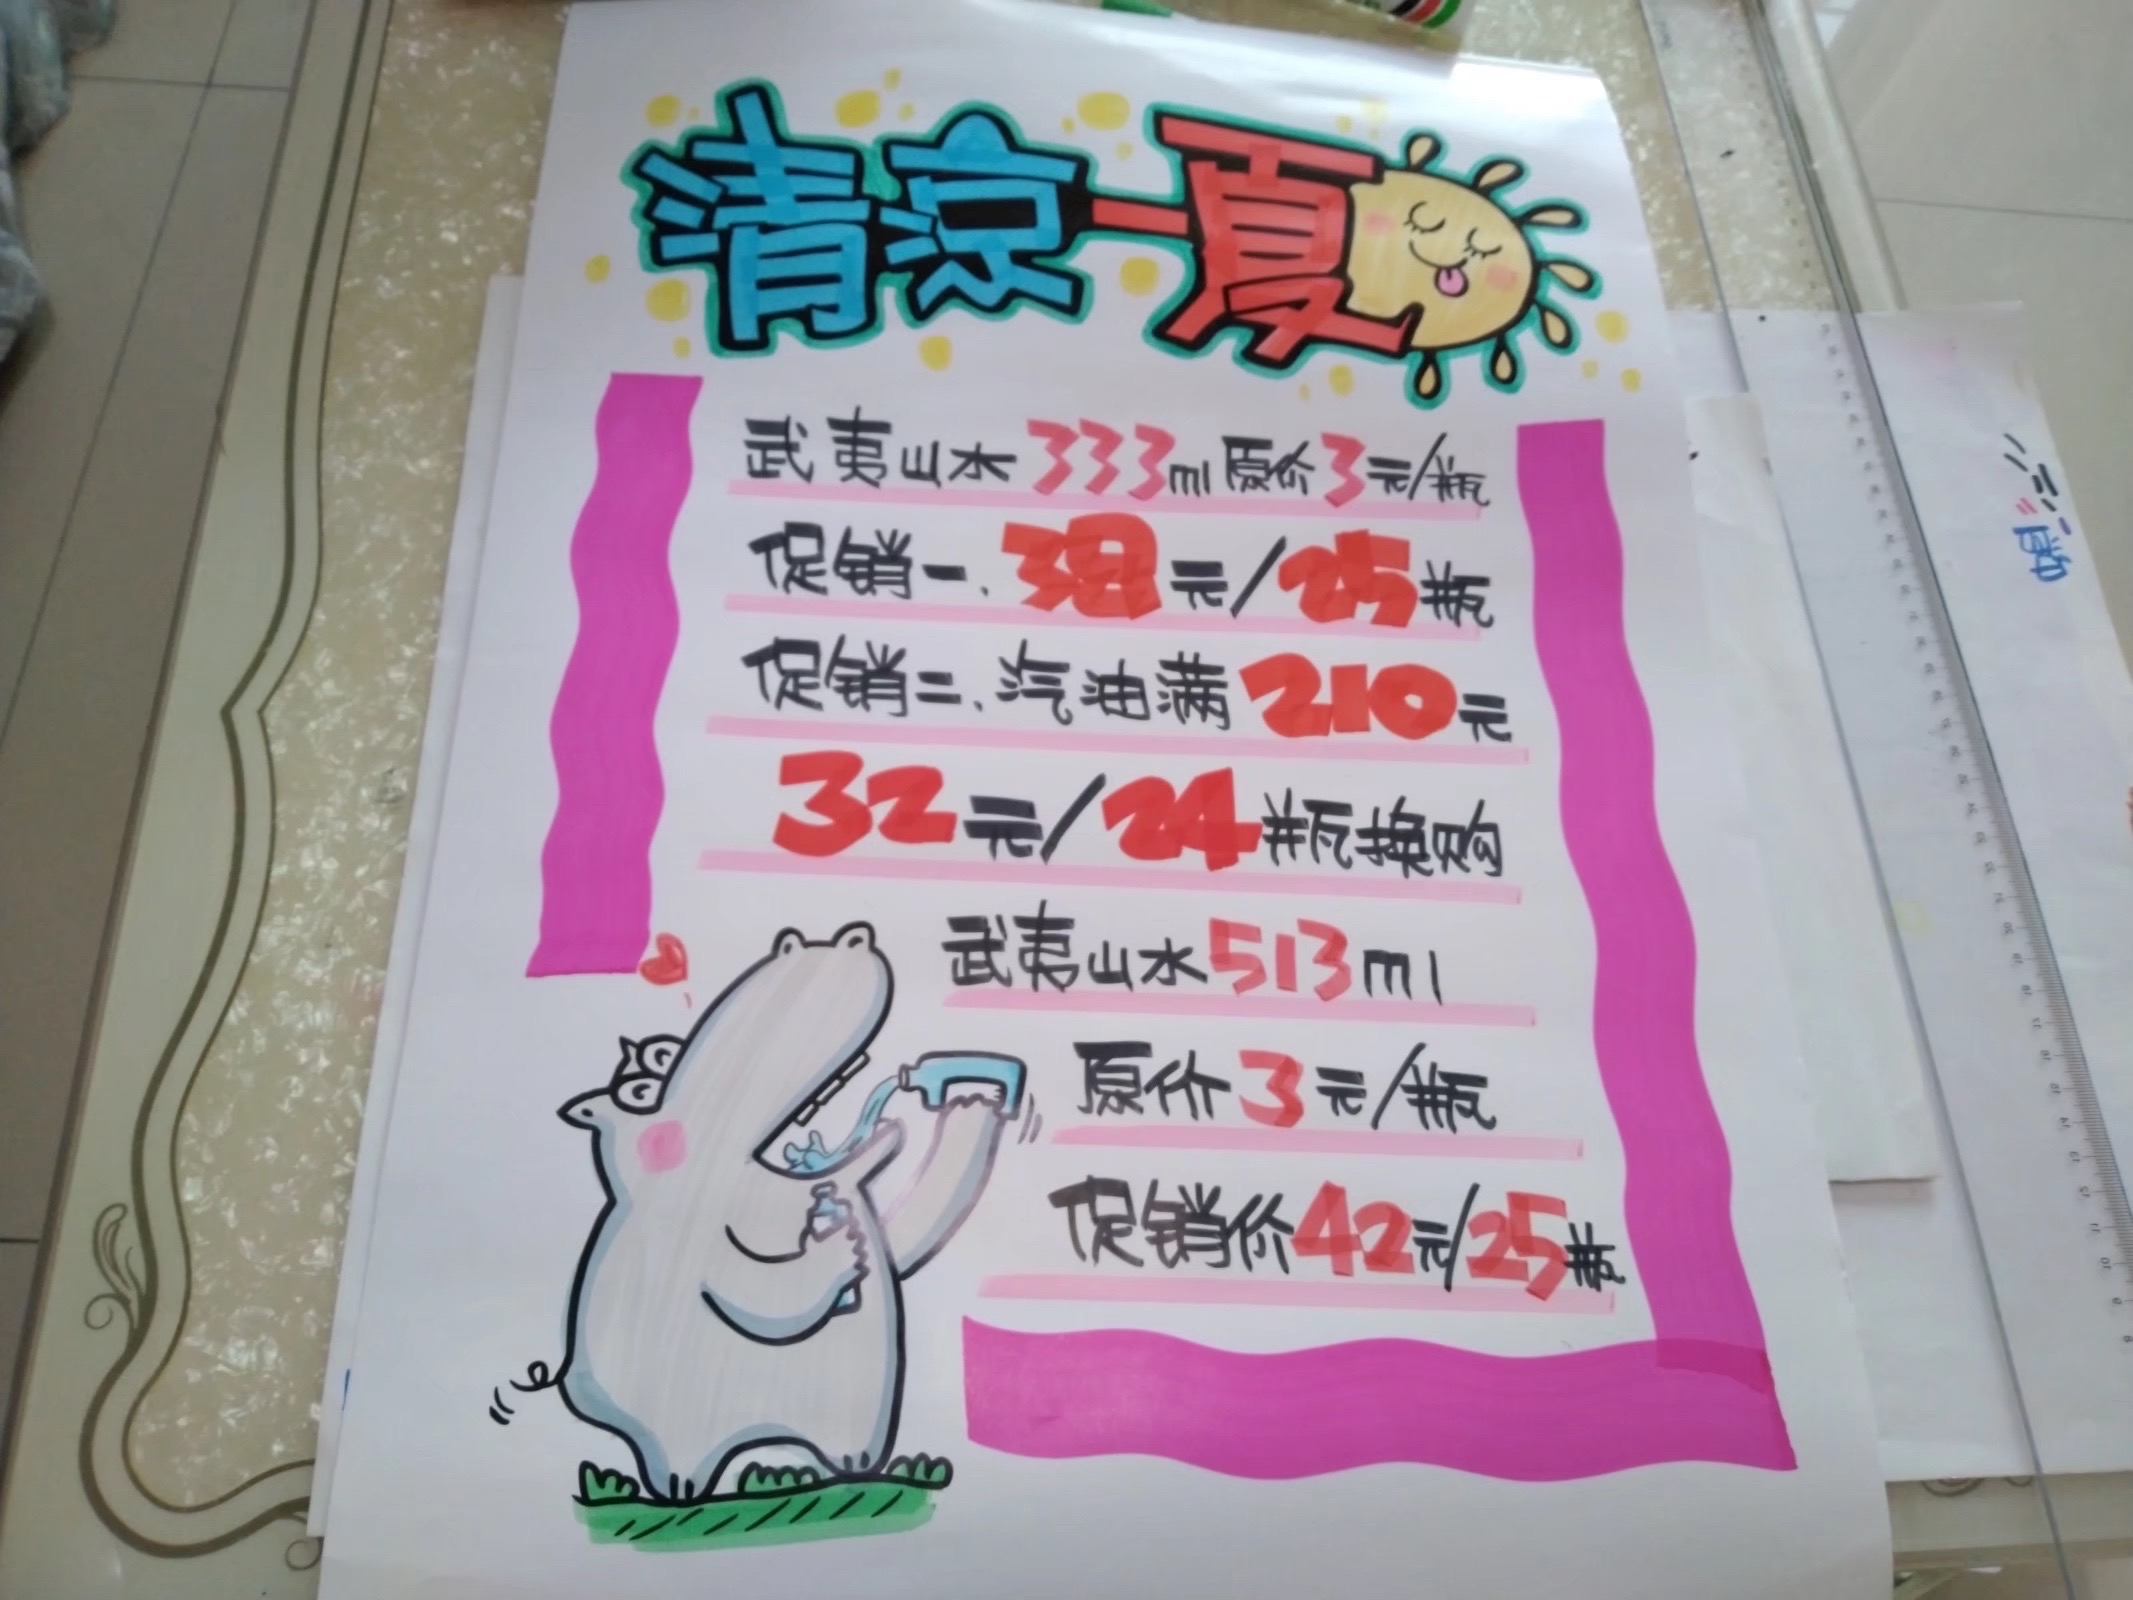 清凉一夏
武夷山水333ml原价3元/瓶
促销一.38元/25瓶
促销二.汽油满210元
32元/24瓶换购
武夷山水513ml
原价3元/瓶
促销价42元/25瓶